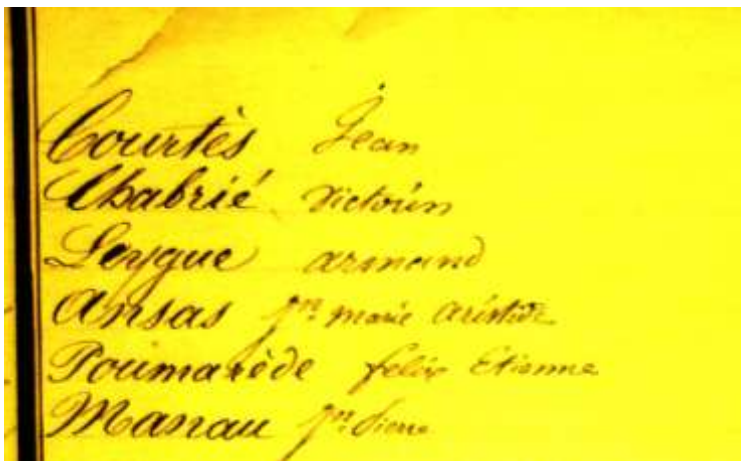 Courtès Jean
Chabrié Victorin
Leygue armand
Ansas jn marie Aristide
Poumarède felix Etienne
Manau jn Pierre